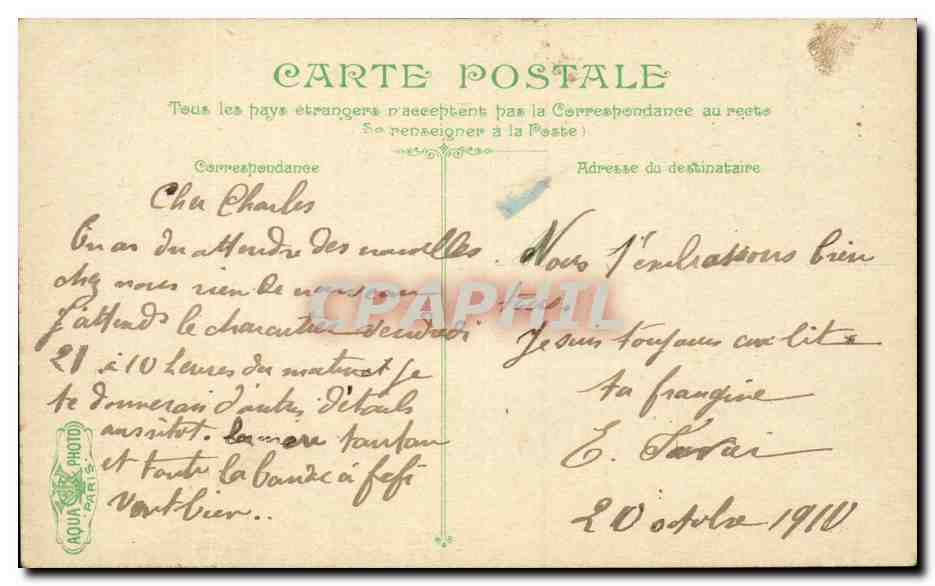 CARTE POSTALE
Tous les pays étrangers n'acceptent pas la Correspondance au recto
Se renseigner à la Poste)
Correspondance
Cher Charles
En as du attendre des nouvelles
chez nous rien de nouveau
J'attends le vendredi
21 à 10 heures du matin et je
te donnerai d'autres détails
aussitot. la mere tonton
et toute la bande à fefi
vont bien..
Adresse du destinataire
Nous t'embrassons bien
tous
Je suis toujours au lit
ta frangine
E.
20 octobre 1910
AQUA PHOTO
PARIS
CPAPHIL
.com